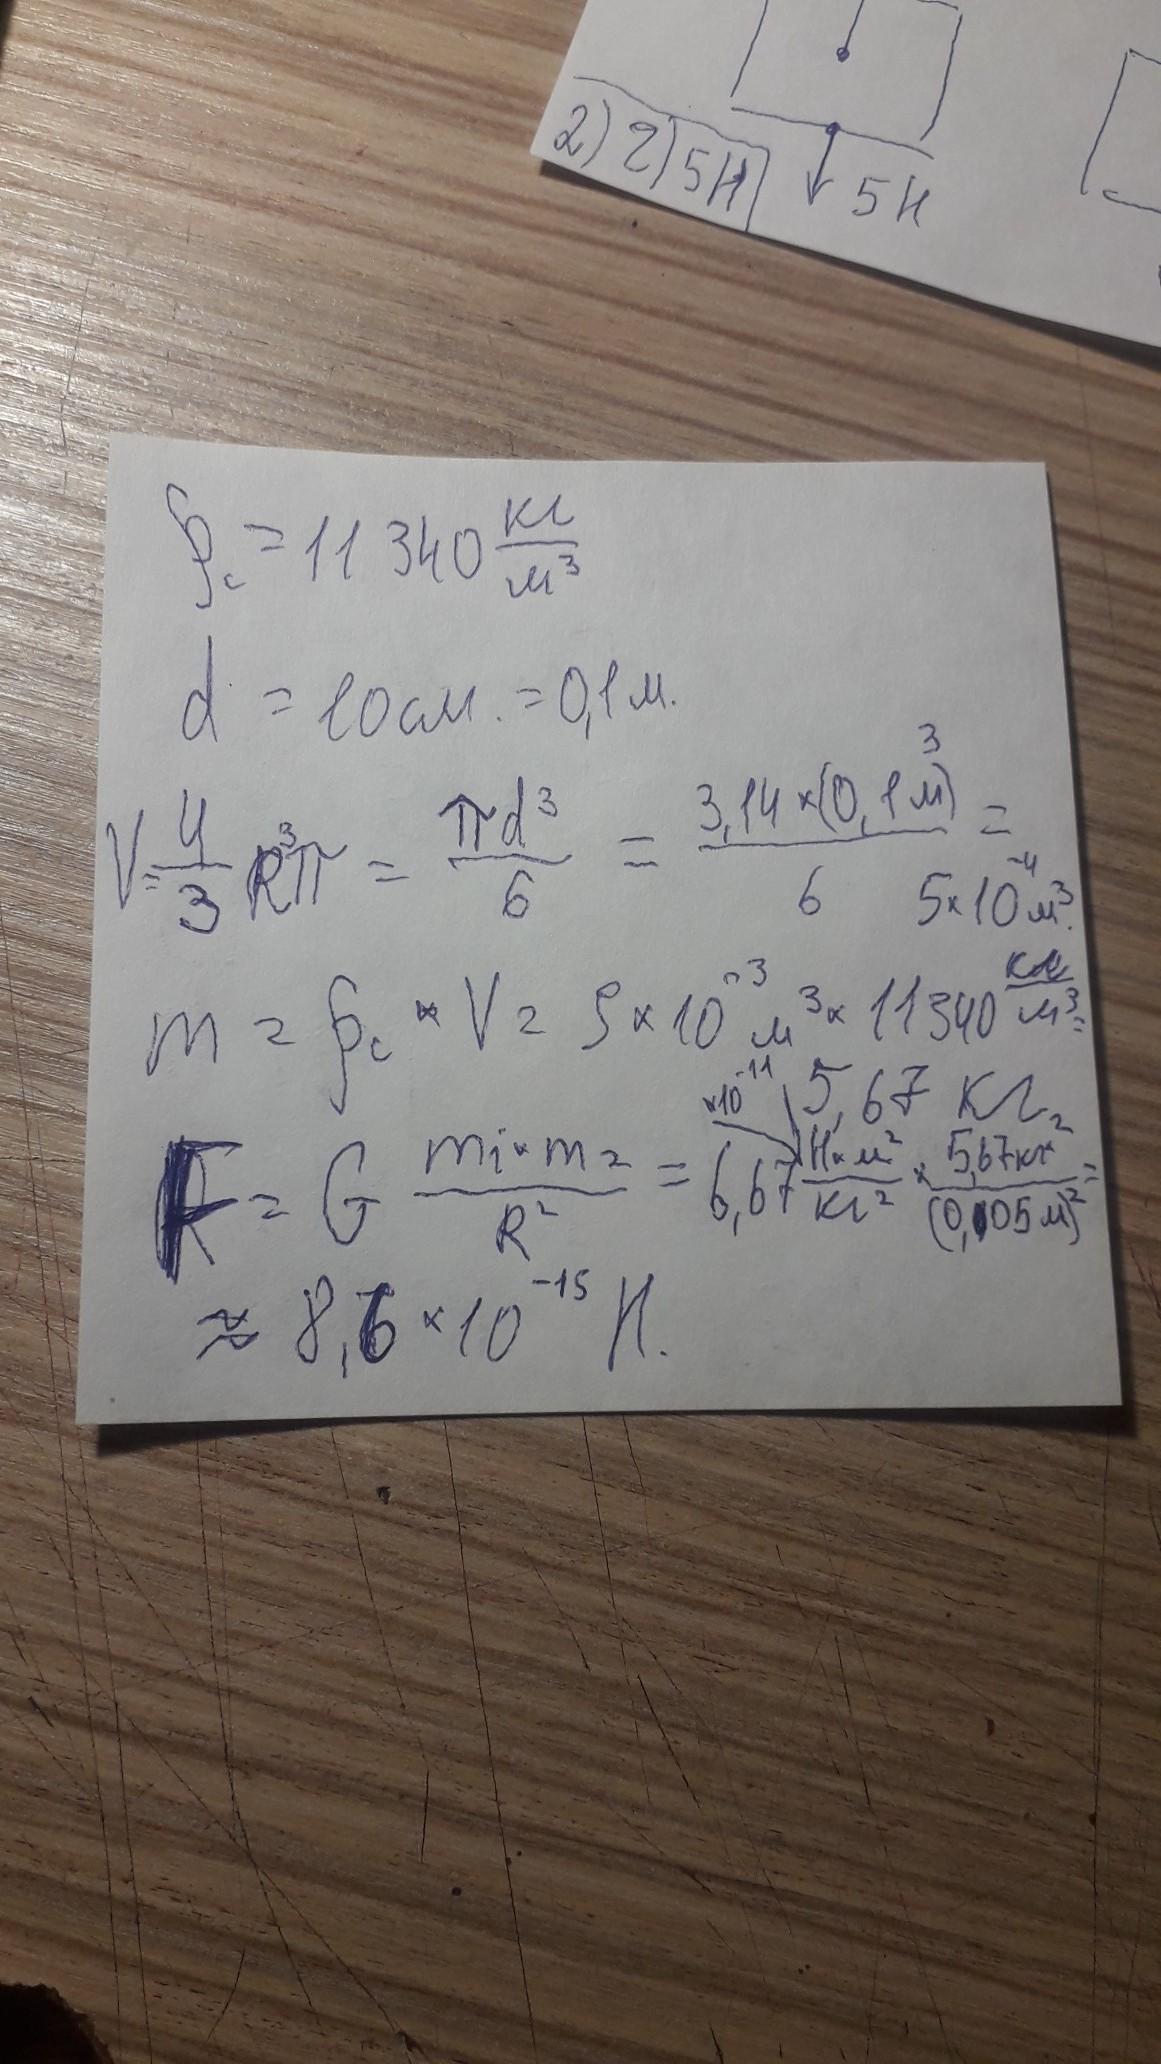 2) 2) 5Н
5Н
ρс = 11 340 кг/м³
d = 10см. = 0,1м.
V = 4/3 R³π = πd³/6 = 3,14×(0,1м)³/6 = 5×10⁻⁴м³.
m = ρс × V = 5×10⁻³ м³ × 11340 кг/м³ =
5,67 кг
F = G m₁×m₂/R² = 6,67×10⁻¹¹ Н×м²/кг² × 5,67кг²/(0,05м)² =
≈ 8,6 × 10⁻¹⁵ Н.